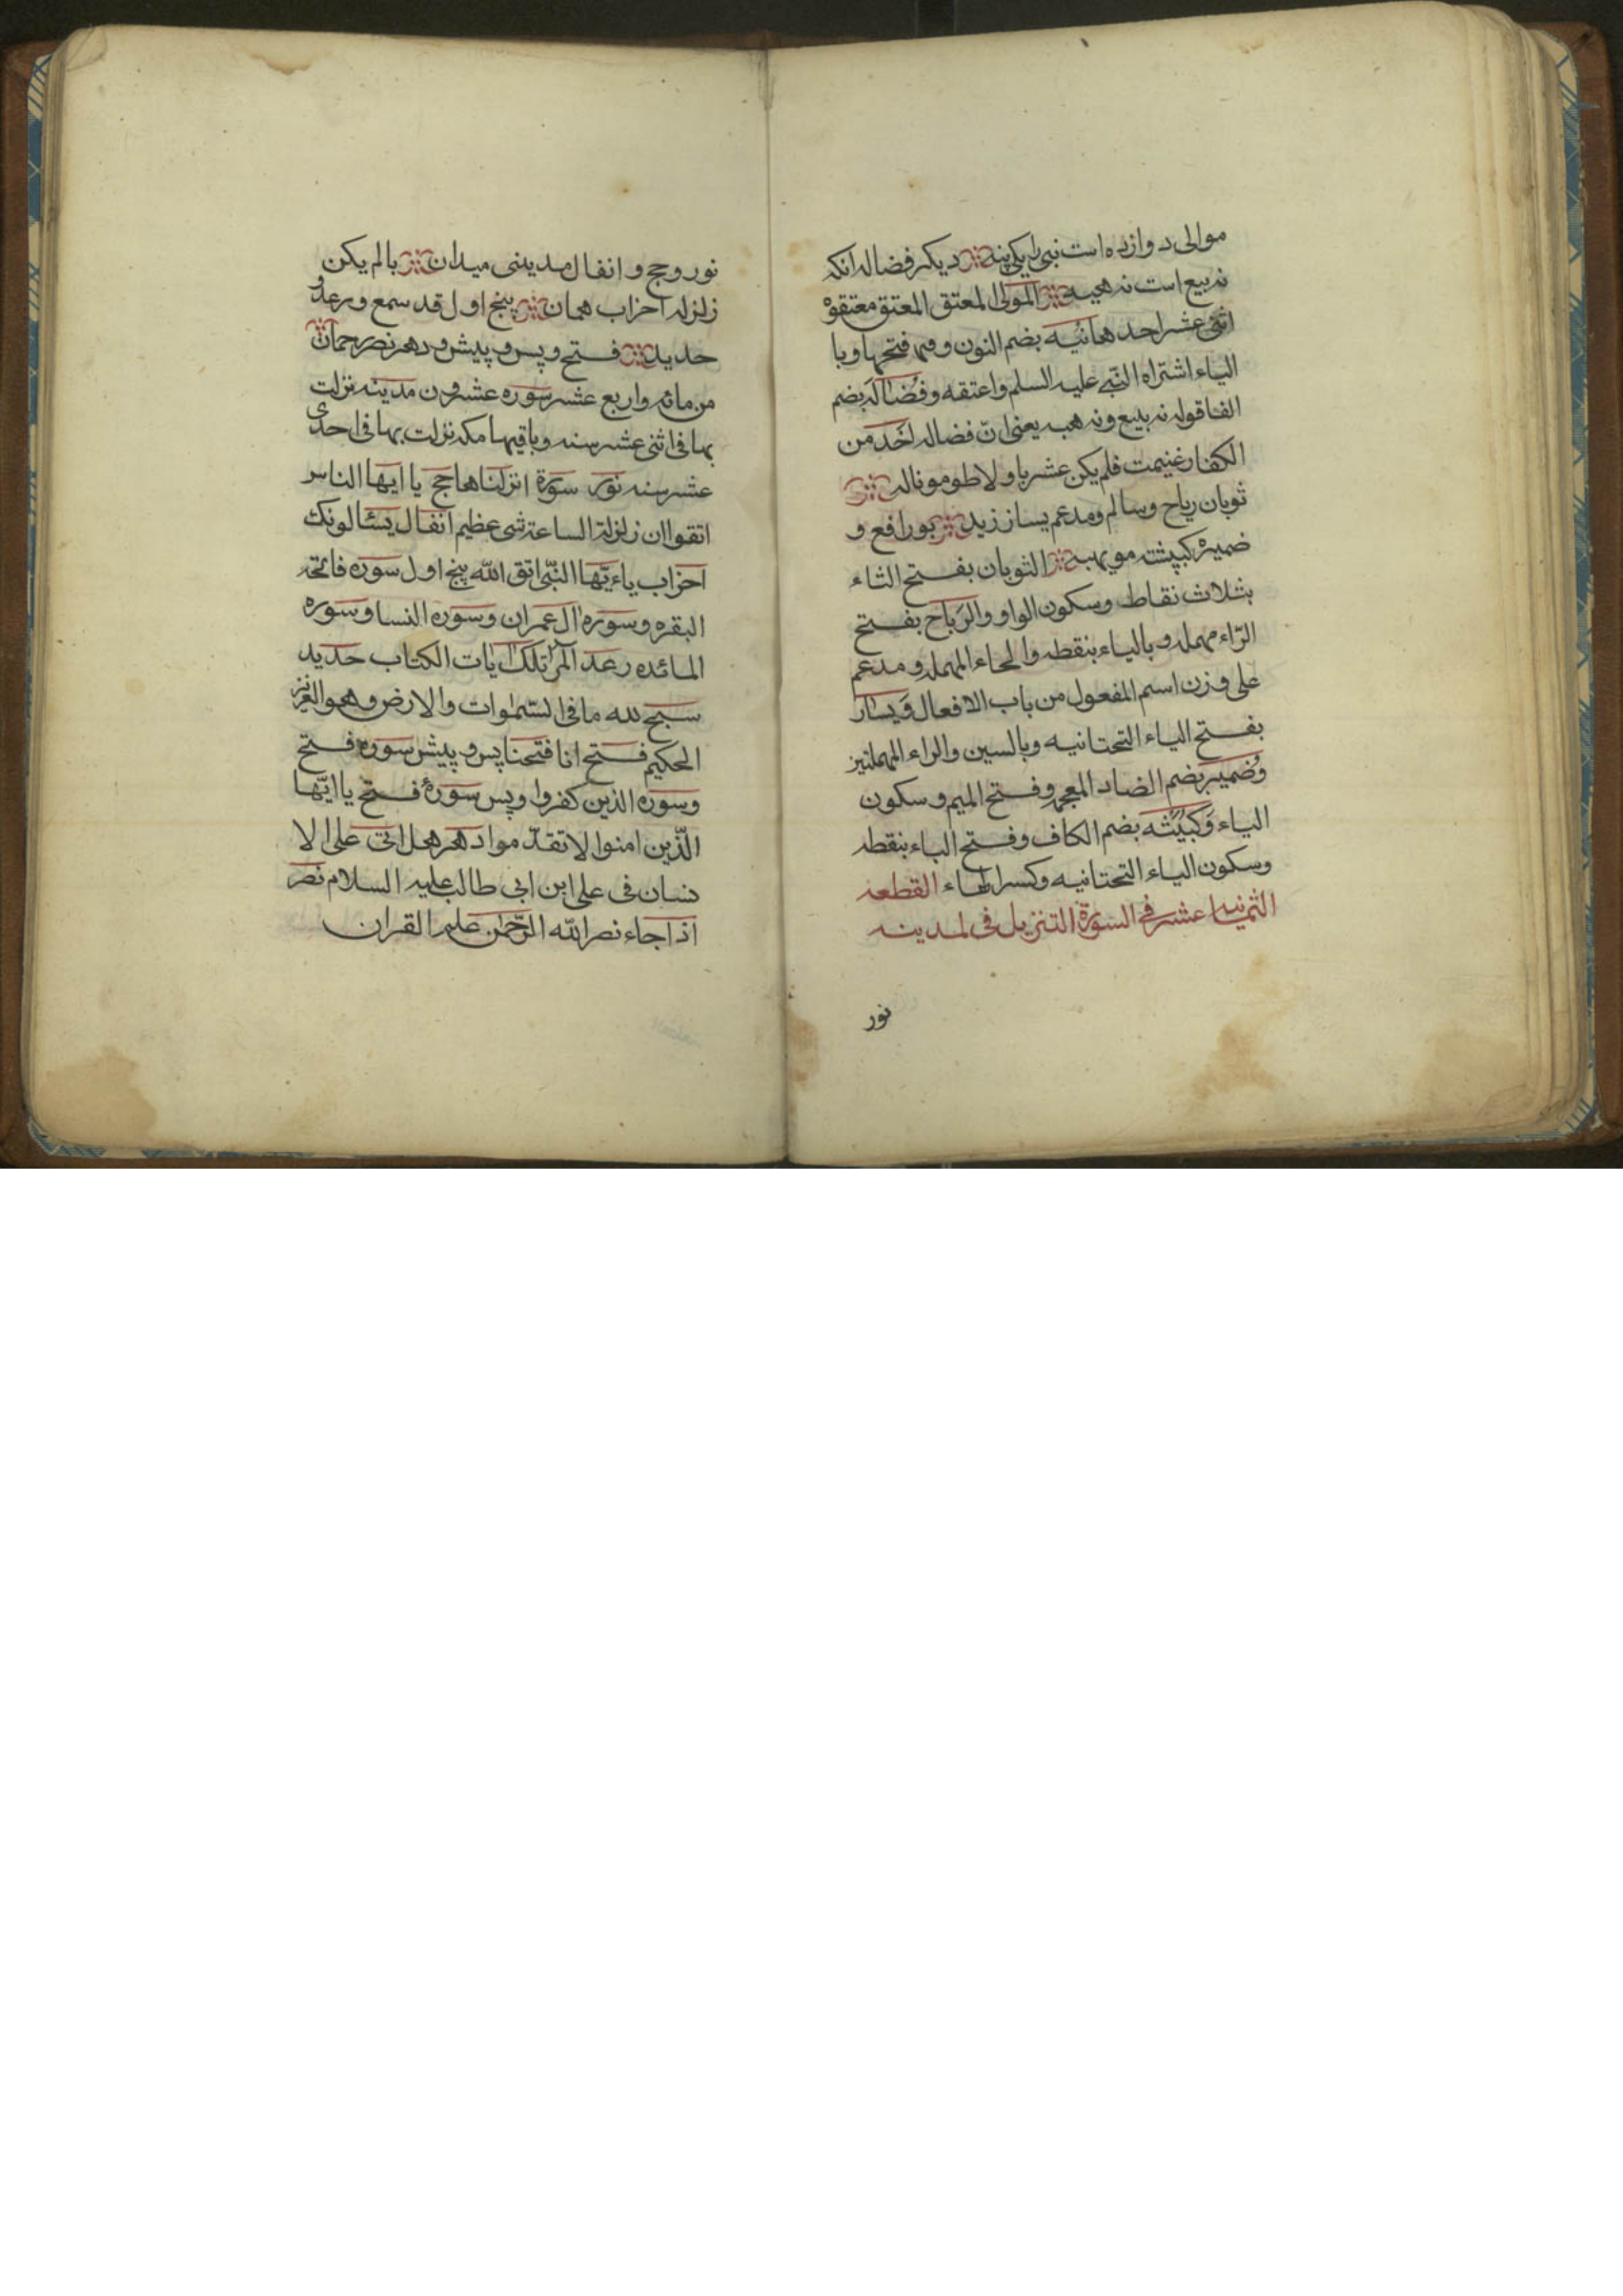 موالی دوازده است نبی را یکی بنه دیکر فضاله انکه
نه بیع است نه هبه المولی المعتق المعتق معتقوه
اثنی عشر احد هانیه بضم النون و فتحها و با
الیاء اشتراه النبی علیه السلم واعتقه و فضاله بضم
الفا قوله نه بیع و نه هبه یعنی ان فضاله اخذ من
الکفار غنیمت فلم یکن عشر با ولا
ثوبان رباح وسالم ومدعم یسار زید بورافع و
ضمیره کبیشته مویهبه الثوبان بفتح الثاء
بثلاث نقاط وسکون الواو والرباح بفتح
الراء مهمله و بالیاء بنقطه والحاء المهمله و مدعم
علی وزن اسم المفعول من باب الافعال ویسار
بفتح الیاء التحتانیه وبالسین والراء المهملتین
وضمیر بضم الضاد المعجمه وفتح المیم و سکون
الیاء وکبیشه بضم الکاف وفتح الباء بنقطه
وسکون الیاء التحتانیه وکسر الهاء القطعه
الثمانیه عشر فی السورة التنزیل فی لمدینه
نور
نور و حج و انفال مدینی میدان با لم یکن
زلزله احزاب همان پنج اول قد سمع و رعد و
حدید فتح و پس و پیش و دهر نصر رحمان
من مائه واربع عشر سوره عشرون مدینه نزلت
بها فی اثنی عشر سنه وباقیها مکه نزلت بها فی احدی
عشر سنه نور سورة انزلناها حج یا ایها الناس
اتقوا ان زلزلة الساعة شی عظیم انفال یسئالونک
احزاب یاءیها النبی اتق الله پنج اول سوره فاتحه
البقره وسوره ال عمران وسوره النسا وسوره
المائده رعد المر تلک ایات الکتاب حدید
سبح لله ما فی السموات والارض وهو العزیز
الحکیم فتح انا فتحنا پس و پیش سوره فتح
وسوره الذین کفروا و پس سورۀ فتح یا ایها
الذین امنوا لا تقدموا دهر هل اتی علی الا
نسان فی علی ابن ابی طالب علیه السلام نصر
اذا جاء نصر الله الرحمن علم القران